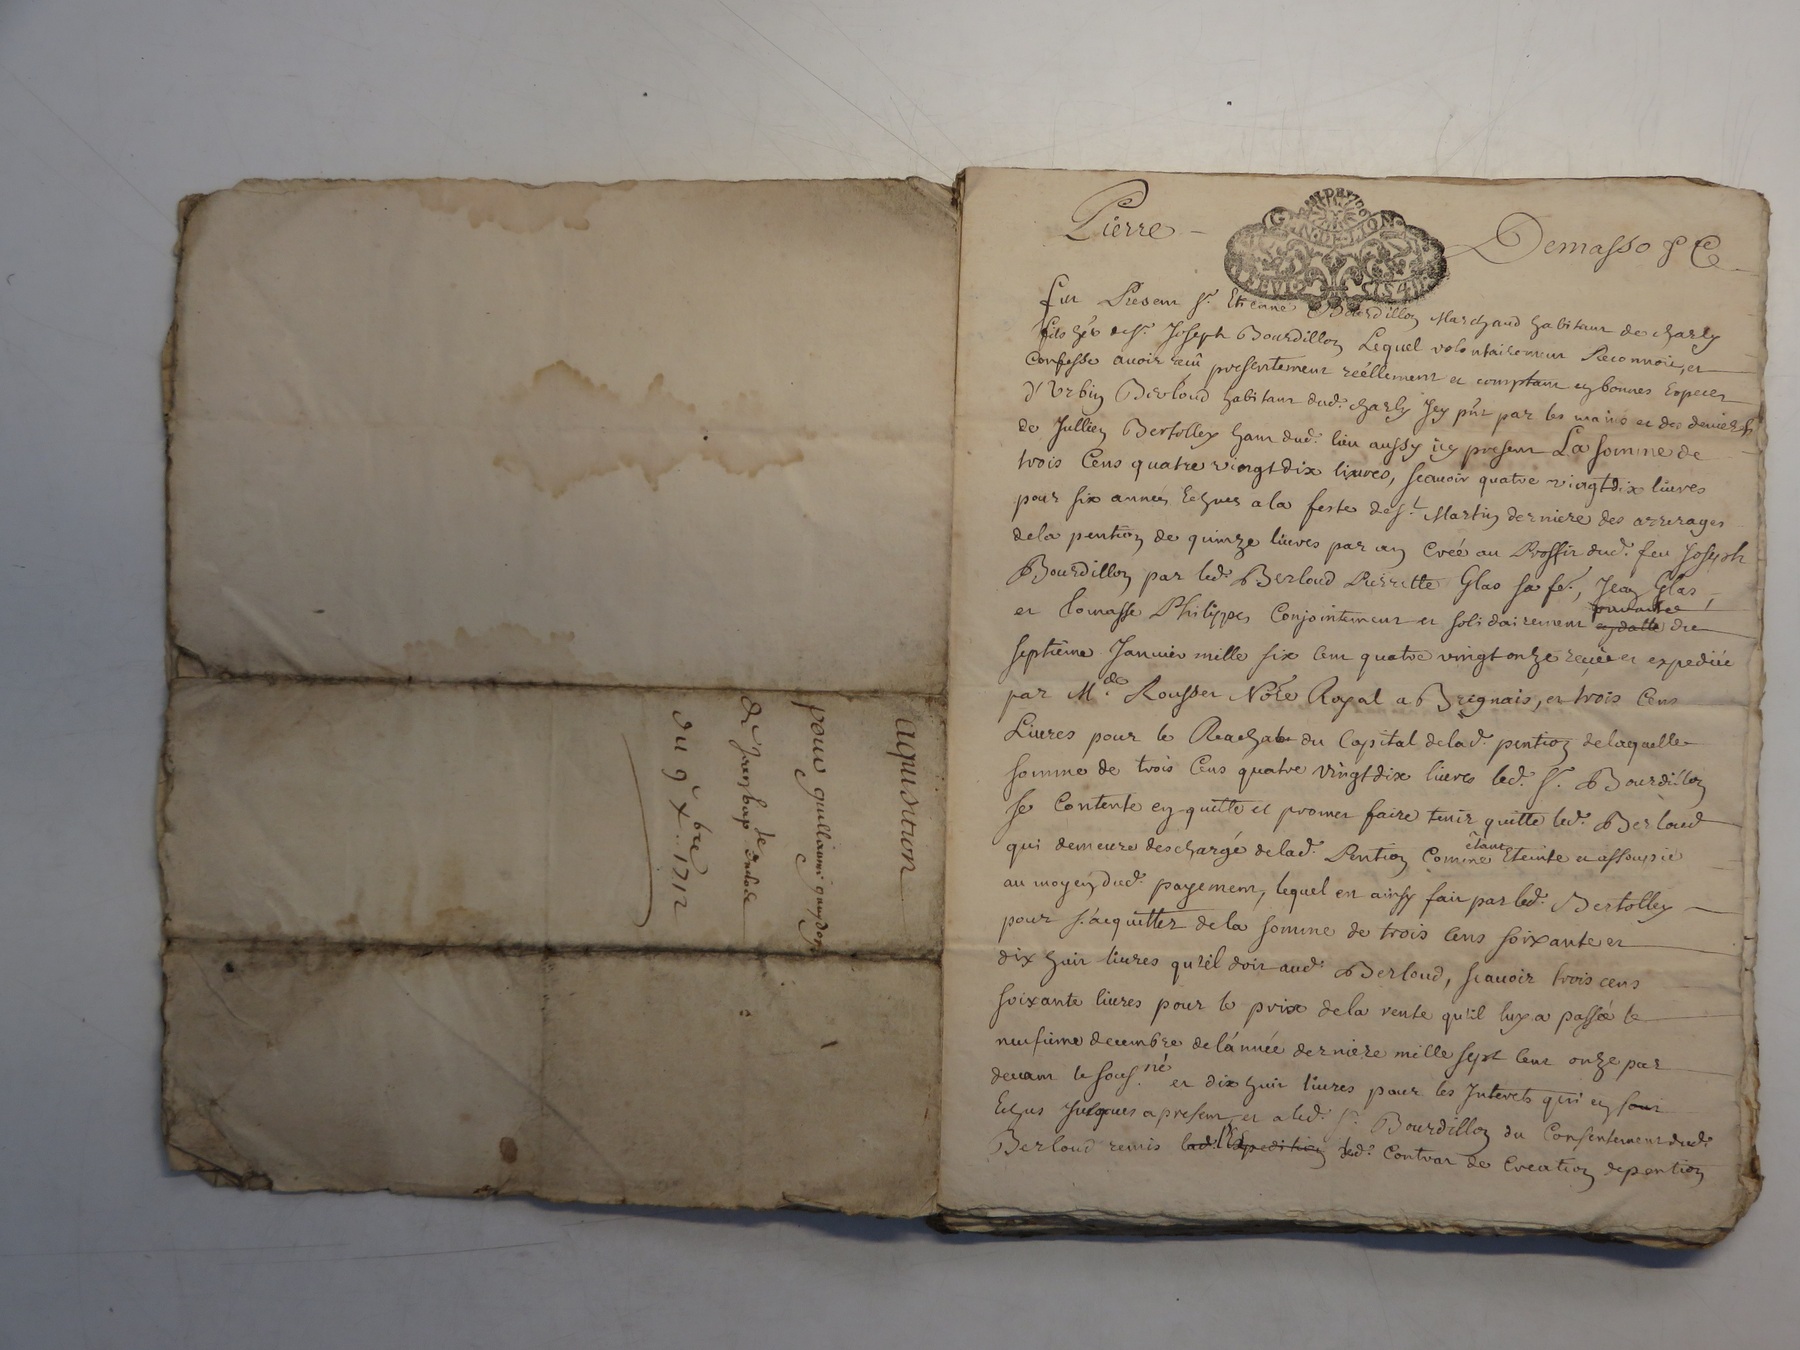 aquisition
pour guillaume guydon
du 9e xbre 1712
Pierre Demasso & C
GEN DE LION
Fut Present sr. Etienne Bourdillon Marchand habitant de charly
fils her de sr. Joseph Bourdillon Lequel volontairement Reconnoit, et
Confesse avoir receû presentement reéllement et comptant en bonnes Especes
d'Urbin Berloud habitant dud. charly Icy pnt par les mains et des deniers
de Jullien Bertolley hant dud. lieu aussy icy present La somme de
trois Cens quatre vingt dix livres, scavoir quatre vingt dix livres
pour six années Echues a la feste de st. Martin derniere des arrerages
de la pention de quinze livres par an Creé au Proffit dud. feu Joseph
Bourdillon par led. Berloud Pierrette Glas sa fe., Jean Glas,
et Tomasse Philippes Conjointement et solidairement en datte du
septième Janvier mille six cent quatre vingt onze receüe et expediée
par Me. de Rousset Nore Royal a Brignais, et trois Cens
Livres pour le Reachat du Capital de lad. pention de laquelle
somme de trois Cens quatre vingt dix livres led. sr. Bourdillon
se Contente en quitte et promet faire tenir quitte led. Berloud
qui demeure deschargé de lad. Pention Comme étant Eteinte et assoupie
au moyen dud. payement, lequel est ainsy fait par led. Bertolley
pour s'acquitter de la somme de trois Cens soixante et
dix huit livres qu'il doit aud. Berloud, scavoir trois cens
soixante livres pour le prix de la vente qu'il luy a passée le
neufieme decembre de l'année derniere mille sept Cent onze par
devant le sousné et dix huit livres pour les Interets qui en sont
Echus Jusques a present, et a led. sr. Bourdillon du Consentement dud.
Berloud remis lad. Expedition dud. Contrat de Creation de pention